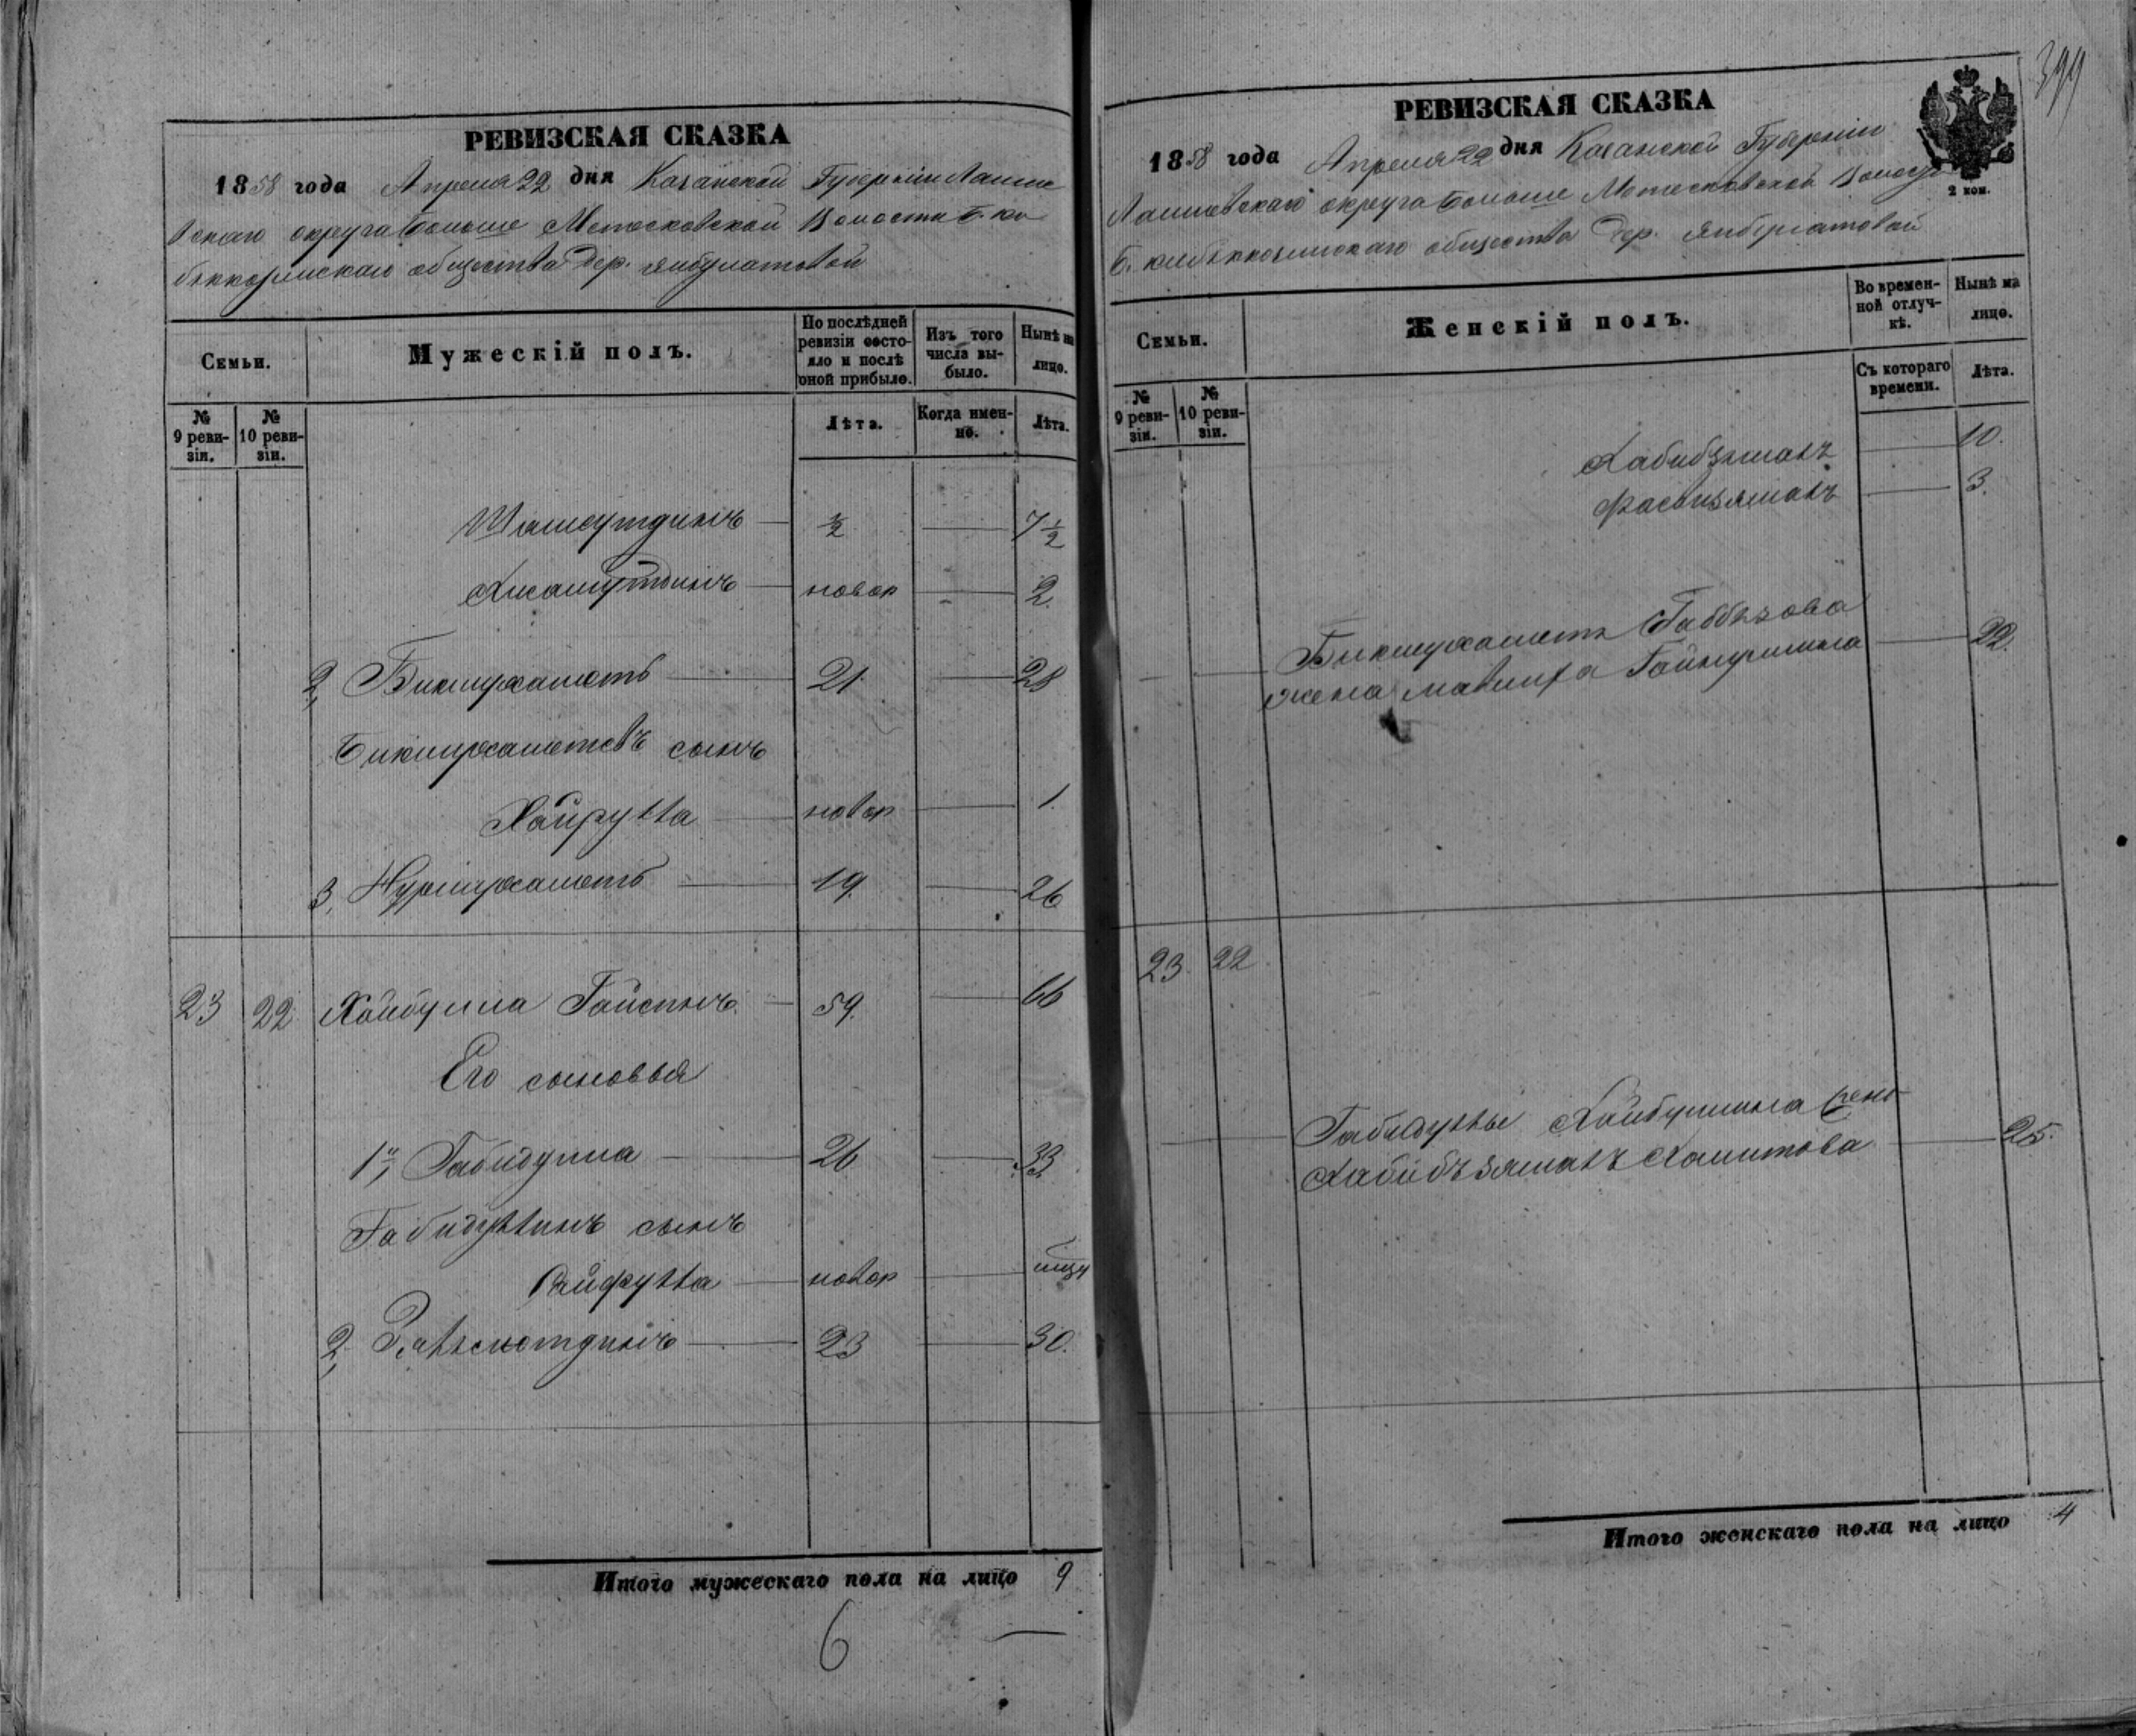 РЕВИЗСКАЯ СКАЗКА
1858 года Апреля 22 дня Казанской Губернии Лаише
вскаго округа Больше Метесковской Волости Б. ки
бяккозинскаго общества дер. янбулатовой
Семьи.
Мужескій полъ.
По послѣдней ревизіи состо-
яло и послѣ
оной прибыло.
Изъ того
числа вы-
было.
Нынѣ на
лицо.
№
9 реви-
зіи.
№
10 реви-
зіи.
Лѣта.
Когда имен-
но.
Лѣта.
Шамсутдинъ ½ 7½
Хисамутдинъ новор 2.
2, Бикмухаметъ 21 28
Бикмухаметевъ сынъ
Хайрулла новор 1.
3, Нурмухаметъ 19. 26
23 22 Хайбулла Гайсинъ 59. 66
Его сыновья
1й, Габидулла 26 33
Габидуллинъ сынъ
новор
2, 23 30.
Итого мужескаго пола на лицо 9
6
399
РЕВИЗСКАЯ СКАЗКА
2 коп.
1858 года Апреля 22 дня Казанской Губернии
Лаишевскаго округа Больше Метесковской Волости
Б. кибяккозинскаго общества дер. янбулатовой
Семьи.
Женскій полъ.
Во времен-
ной отлуч-
кѣ.
Нынѣ на
лицо.
№
9 реви-
зіи.
№
10 реви-
зіи.
Съ котораго
времени.
Лѣта.
Хабибзямалъ 10.
3.
Бикмухаметя
жена 22.
23. 22
Габидуллы Хайбуллина жена
Хабибъзямалъ Хамитова 25.
Итого женскаго пола на лицо 4